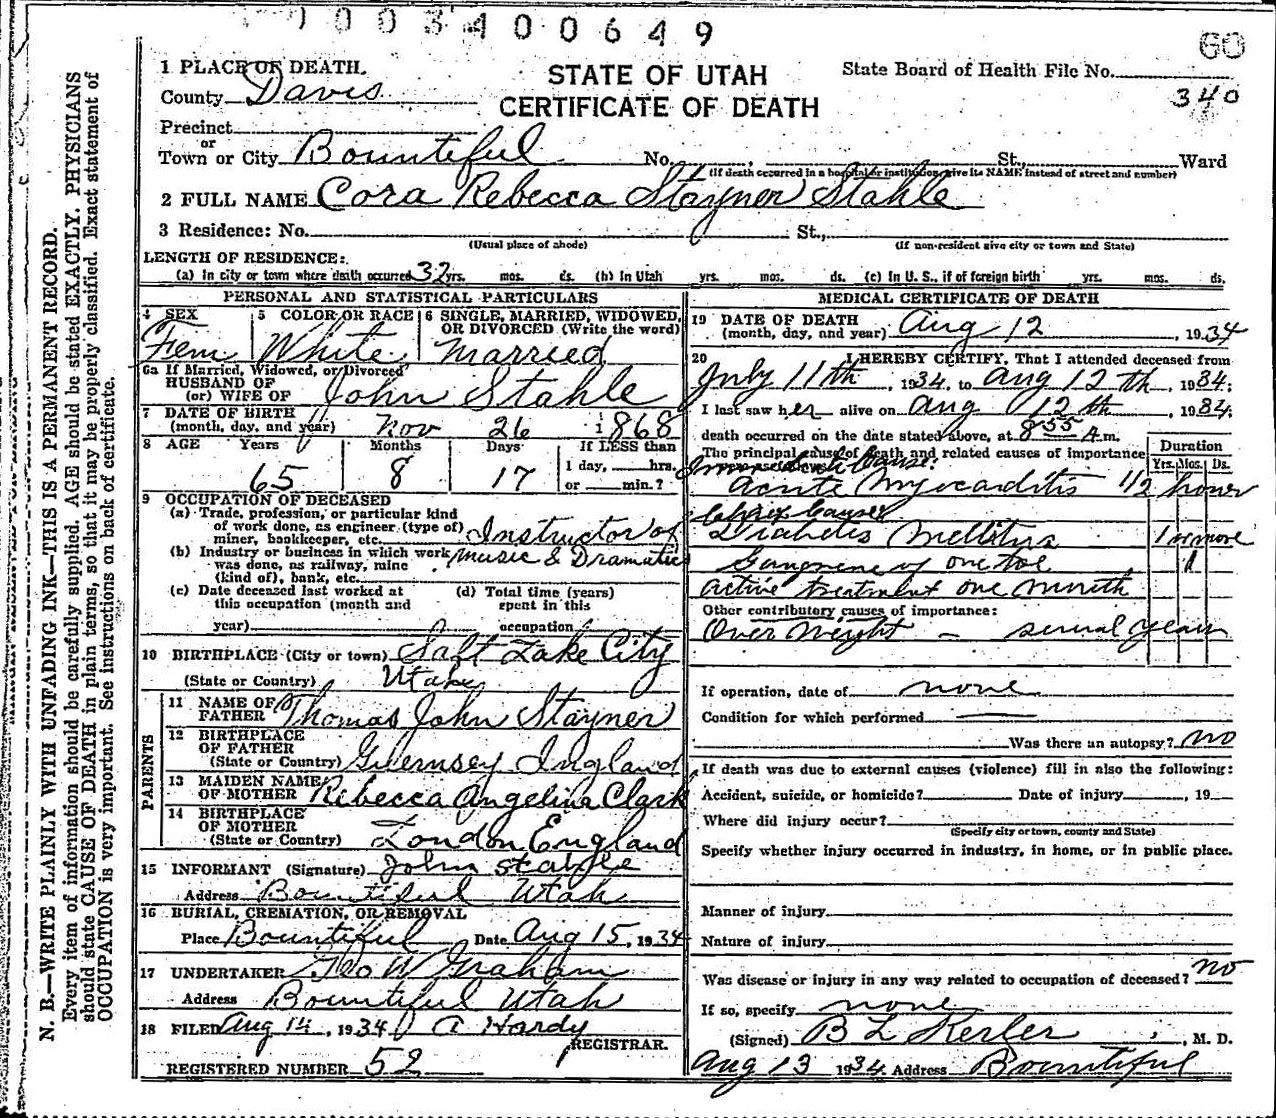 003400649
60
1 PLACE OF DEATH.
STATE OF UTAH
State Board of Health File No.
County Davis
CERTIFICATE OF DEATH
340
Precinct
or
Town or City Bountiful No. , St., Ward
(If death occurred in a hospital or institution, give its NAME instead of street and number)
2 FULL NAME Cora Rebecca Stayner Stahle
3 Residence: No. St.,
(Usual place of abode) (If non-resident give city or town and State)
LENGTH OF RESIDENCE:
(a) In city or town where death occurred 32 yrs. mos. ds. (b) In Utah yrs. mos. ds. (c) In U. S., if of foreign birth yrs. mos. ds.
PERSONAL AND STATISTICAL PARTICULARS
4 SEX 5 COLOR OR RACE 6 SINGLE, MARRIED, WIDOWED,
OR DIVORCED (Write the word)
Fem White Married
6a If Married, Widowed, or Divorced
HUSBAND OF
(or) WIFE OF John Stahle
7 DATE OF BIRTH
(month, day, and year) Nov 26 1868
8 AGE Years Months Days If LESS than
65 8 17 1 day, hrs.
or min.?
9 OCCUPATION OF DECEASED
(a) Trade, profession, or particular kind
of work done, as engineer (type of)
miner, bookkeeper, etc. Instructor of
(b) Industry or business in which work Music & Dramatics
was done, as railway, mine
(kind of), bank, etc.
(c) Date deceased last worked at (d) Total time (years)
this occupation (month and spent in this
year) occupation
10 BIRTHPLACE (City or town) Salt Lake City
(State or Country) Utah
PARENTS
11 NAME OF
FATHER Thomas John Stayner
12 BIRTHPLACE
OF FATHER
(State or Country) Guernsey Ingland
13 MAIDEN NAME
OF MOTHER Rebecca Angelina Clark
14 BIRTHPLACE
OF MOTHER
(State or Country) London England
15 INFORMANT (Signature) John Stahle
Address Bountiful Utah
16 BURIAL, CREMATION, OR REMOVAL
Place Bountiful Date Aug 15, 1934
17 UNDERTAKER Geo W Graham
Address Bountiful Utah
18 FILED Aug 14, 1934 A Hardy
REGISTRAR.
REGISTERED NUMBER 52
MEDICAL CERTIFICATE OF DEATH
19 DATE OF DEATH
(month, day, and year) Aug 12, 1934
20 I HEREBY CERTIFY, That I attended deceased from
July 11th, 1934, to Aug 12th, 1934;
I last saw her alive on Aug 12th, 1934;
death occurred on the date stated above, at 8 55 A m.
The principal cause of death and related causes of importance
Duration
Yrs. Mos. Ds.
Immediate Cause:
Acute Myocarditis 1/2 hour
Causes
Diabetes Mellitus 1 or more
Gangrene of one toe
active treatment one month
Other contributory causes of importance:
Over Weight - several years
If operation, date of none
Condition for which performed
Was there an autopsy? no
If death was due to external causes (violence) fill in also the following:
Accident, suicide, or homicide? Date of injury , 19
Where did injury occur?
(Specify city or town, county and State)
Specify whether injury occurred in industry, in home, or in public place.
Manner of injury
Nature of injury
Was disease or injury in any way related to occupation of deceased? no
If so, specify none
(Signed) B L , M. D.
Aug 13 1934 Address Bountiful
N. B.—WRITE PLAINLY WITH UNFADING INK—THIS IS A PERMANENT RECORD.
Every item of information should be carefully supplied. AGE should be stated EXACTLY. PHYSICIANS
should state CAUSE OF DEATH in plain terms, so that it may be properly classified. Exact statement of
OCCUPATION is very important. See instructions on back of certificate.